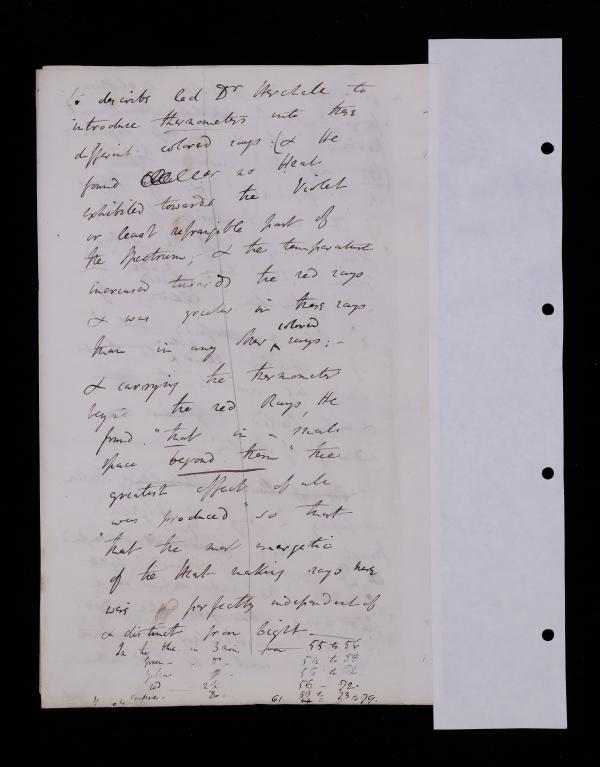 to describe led Dr Herchelle to
introduce thermometers into these
different colored rays: (& He
found little or no Heat
exhibited towards the Violet
or least refrangible part of
the Spectrum; & the temperature
increased towards the red rays
& was greater in these rays
than in any other colored rays: -
& carrying the thermometer
beyond the red Rays, He
found "that in a small
space beyond them" the
greatest effect of all
was produced" so that
"that the most energetic
of the Heat making rays here
were perfectly independent of
& distinct from light
In the blue in 3 min. from 55 to 56
Green 54 to 58
Yellow 56 to 62
red 2½ 56 - 72.
61. 73 to 79.